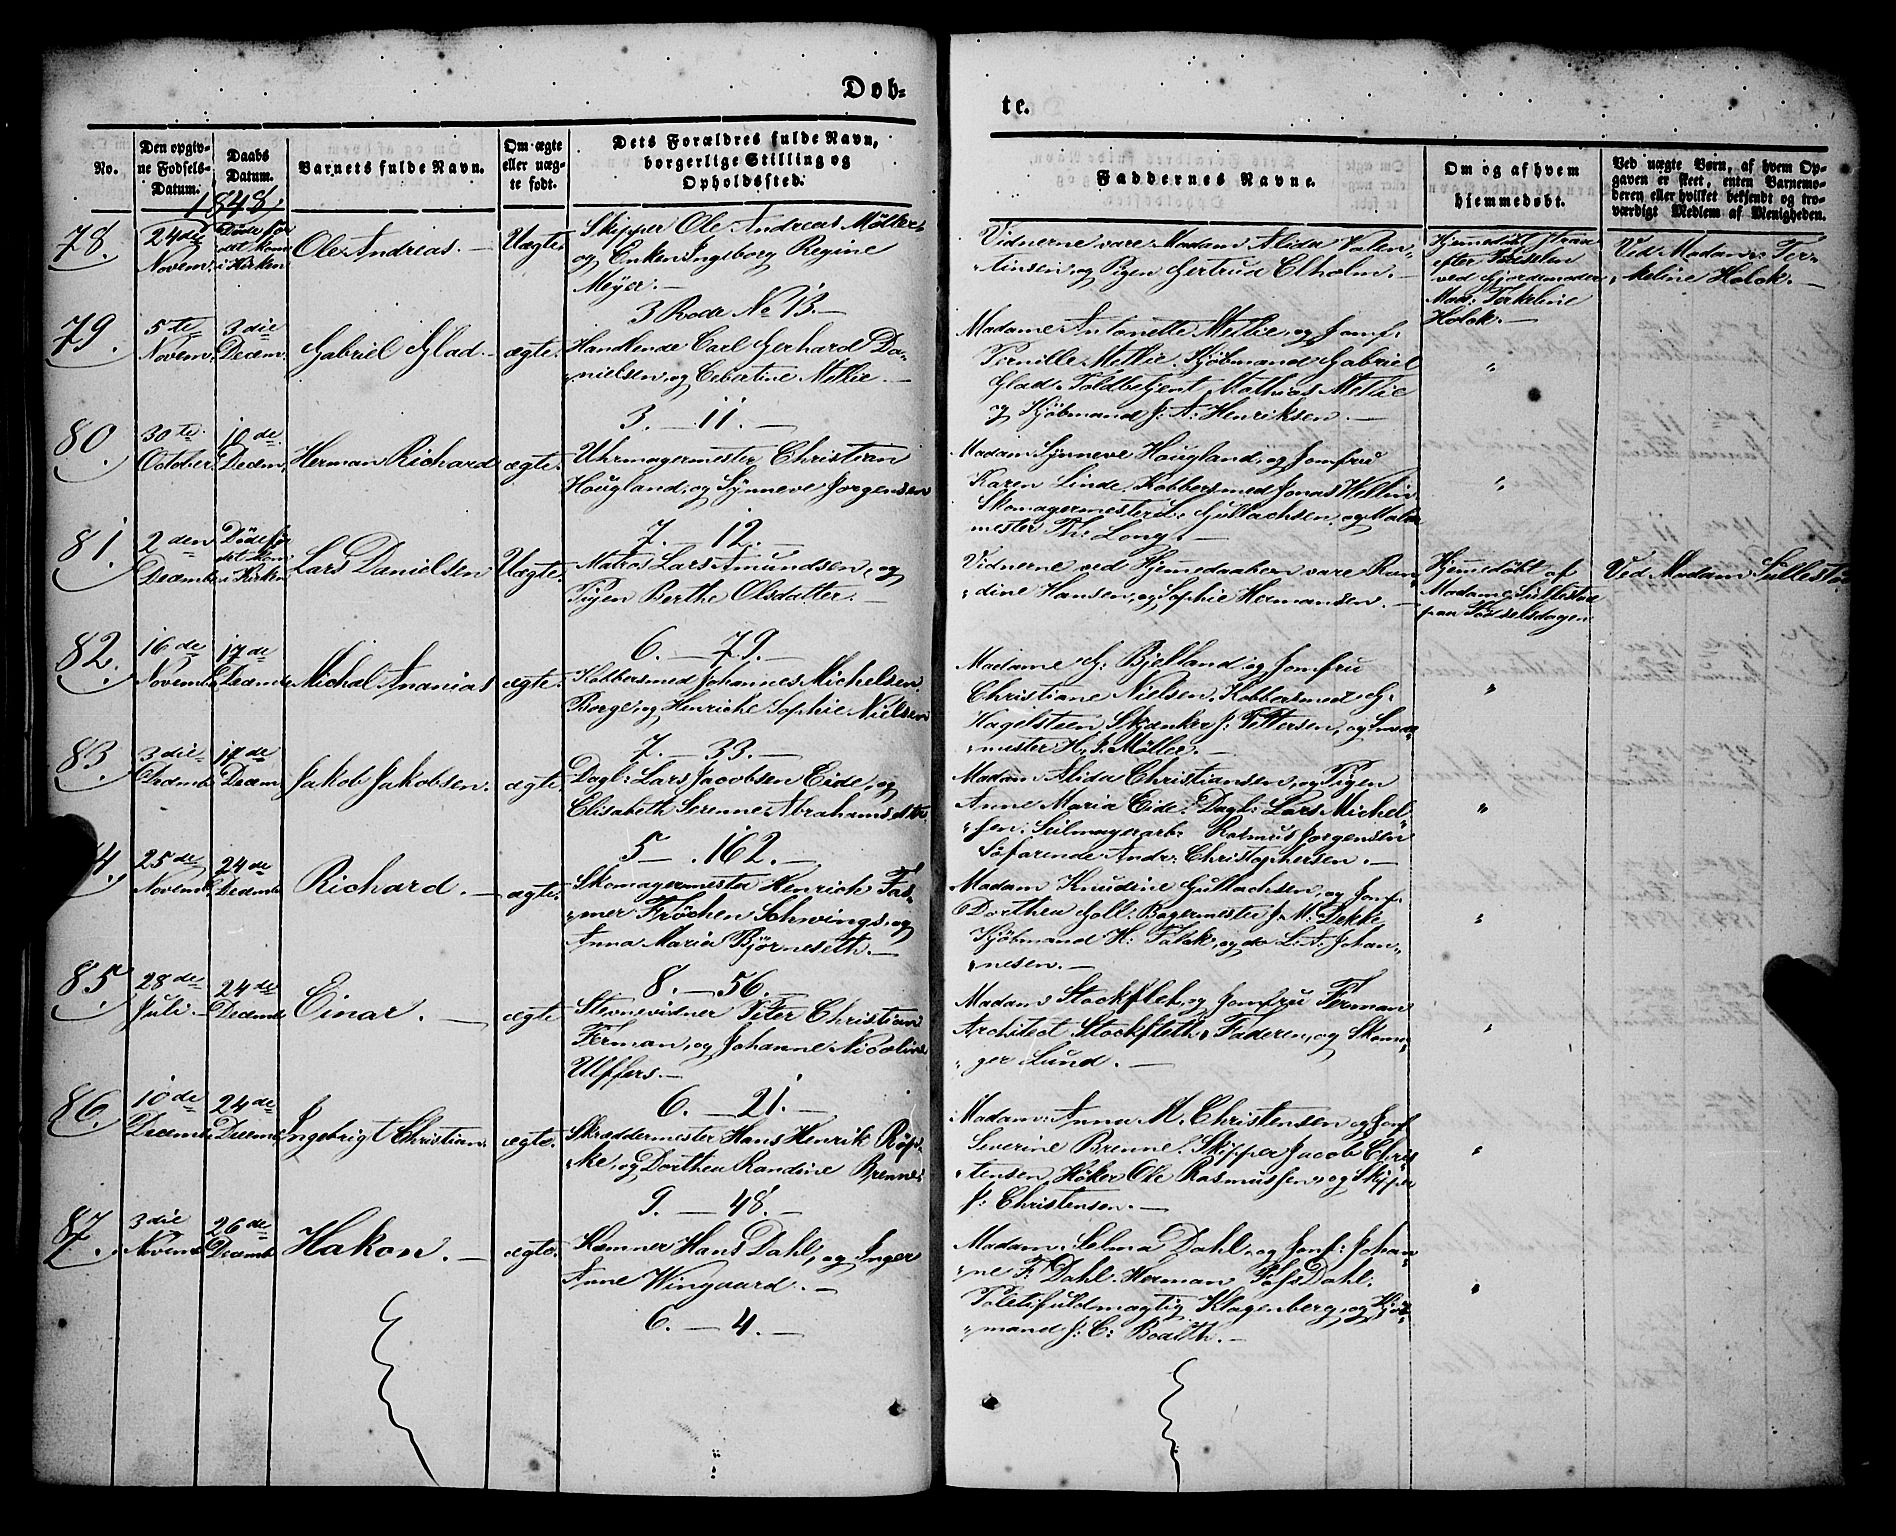 Döb=
te.
No.
Den opgiv-
ne Fødsels-
Datum.
Daabs
Datum.
Barnets fulde Navn.
Om ægte
eller uæg-
te født.
Dets Forældres fulde Navn,
borgerlige Stilling og
Opholdssted.
Faddernes Navne.
Om og af hvem
hjemmedøbt.
Ved uægte Børn, af hvem Op-
gaven er skeet, enten Barnemo-
deren eller hvilket bekjendt og tro-
værdigt Medlem af Menigheden.
1848
78. 24die Novem. Döde för det kom i Kirken Ole Andreas. — Uægte.
Skipper Ole Andreas Möller
og Enken Ingeborg Regine
Meÿer. —
3 Rode No 13. —
Vidnerne vare Madam Alida Valen-
tinsen, og Pigen Gertrud Elholm. —
Hjemedöbt strax
efter Födselen
ved Gjordemoder
Mad: Terkeline
Holck. —
Ved Madam: Ter-
keline Holck. —
79. 5te Novem. 3die Decem. Gabriel Glad. — ægte.
Handlende Carl Gerhard Da-
nielsen, og Cebertine Melkie. —
3. — 11. —
Madame Antonette Melkie, og Jomf:
Pernille Melkie. Kjöbmand Gabriel
Glad. Toldbetjent Mathias Melkie
og Kjöbmand J: A: Henriksen. —
80. 30te October 10de Decem. Herman Richard ægte.
Uhrmagermester Christian
Hougland, og Sÿnneve Jorgensen
7. — 12. —
Madam Sÿnneve Hougland, og Jomfru
Karen Linde, Kobbersmed Jonas Wellin
Skomagermester Gullachsen, og Maler
mester Th: Long. —
81. 2den Decemb. Döde för det kom i Kirken Lars Danielsen Uægte.
Matros Lars Amundsen, og
Pigen Berthe Olsdatter. —
6. — 79. —
Vidnerne ved Hjemmedaaben vare Ran-
dine Hansen, og Sophie Hermansen. —
Hjemedöbt af
Madame Sullestad
paa Födselsdagen
Ved Madam Sullestad
82. 16de Novemb. 17de Decemb. Michal Ananias ægte.
Kobbersmed Johannes Michelsen
Borge, og Henriche Sophie Nielsen
7. — 33. —
Madame G: Bjelland og Jomfru
Christiane Nielsen. Kobbersmed G:
Hagelsteen, Skjænker J: Pettersen, og Smede
mester H. J. Möller. —
83. 3die Decemb. 17de Decem. Jakob Jakobsen. ægte
Dagl: Lars Jacobsen Eide, og
Elisabeth Serenne Abrahamsdtr.
5 — . 162. —
Madam Alida Christiansen, og Pigen
Anne Maria Eide. Dagl: Lars Michel-
sen. Seilmagerarb: Rasmus Jorgensen
Söfarende Andr: Christophersen. —
4. 25de Novemb. 24de Decemb. Richard. — ægte.
Skomagermester Henrich Fas-
mer Fröchen Schwings, og
Anna Maria Bjørneseth. —
8. — 56. —
Madam Knudine Gullachsen, og Jomf:
Dorthea Goll: Bagermester J. M: Dekke
Kjöbmand H: Falck, og do L: A: Johan-
nesen. —
85. 28de Juli. 24de Decemb. Einar. — ægte
Stevnevidner Peter Christian
Ferman, og Johanne Nicoline
Ulffers. —
6. — 21. —
Madam Stockflet, og Jomfru Ferman
Architect Stockfleth, Faderen, og Skoma-
ger Lund. —
86. 10de Decemb. 24de Decemb. Ingebrigt Christian. ægte.
Skræddermester Hans Henrik Röp-
ke, og Dorthea Randine Brenne.
9. — 48. —
Madam: Anna M. Christensen og Jomf.
Severine Brenne. Skipper Jacob Chris-
tensen, Höker Ole Rasmussen, og Skipper
J: Christensen. —
87. 3die Novemb. 26de Decemb. Hakon. — ægte.
Kæmner Hans Dahl, og Inger
Anne Wingaard. —
6. — 4. —
Madam. Selma Dahl, og Jomf: Johan-
ne F: Dahl. Herman Fofs Dahl.
Politifuldmægtig Klagenberg, og Kjöb-
mand J: C: Boalth. —